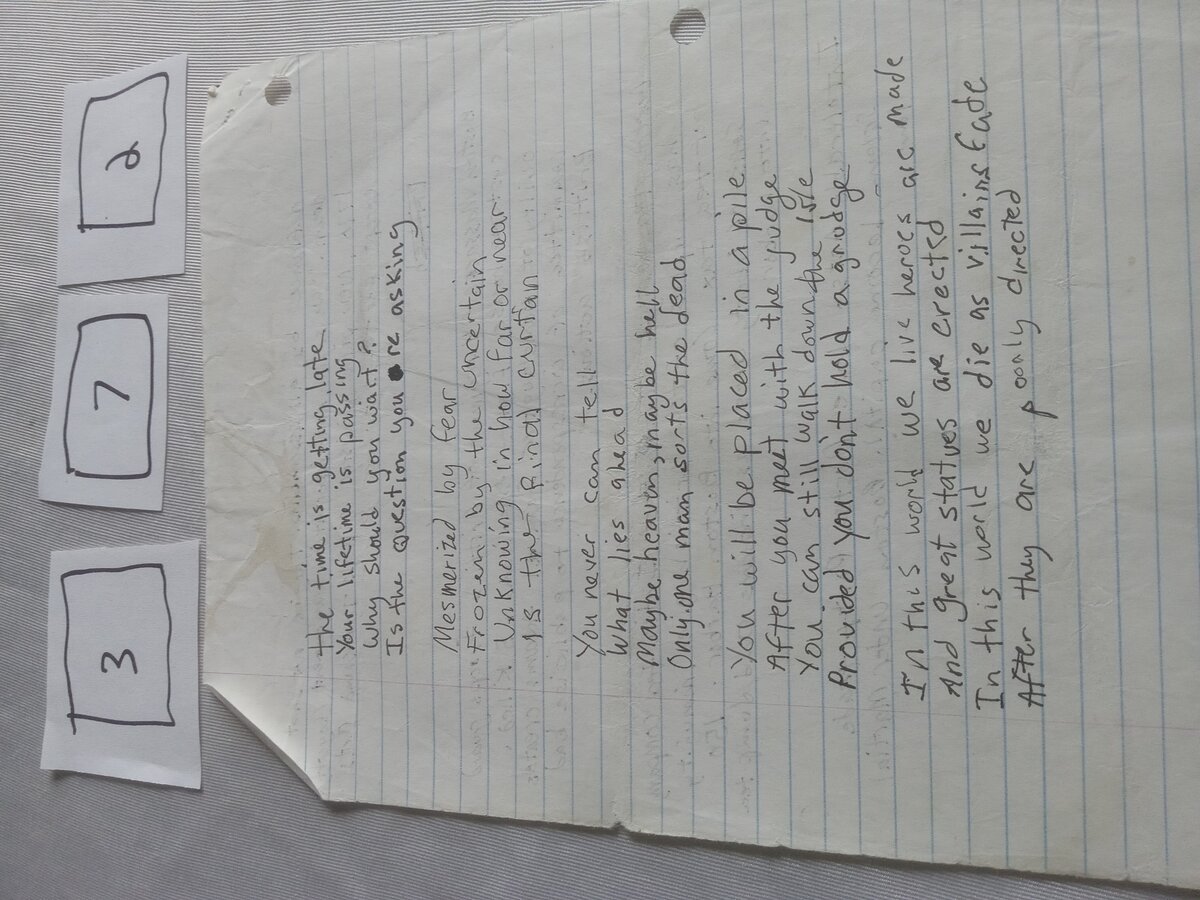 3 7 2
the time is getting late
Your lifetime is passing
Why should you wait?
Is the question you're asking
Mesmerized by fear
Frozen by the uncertain
Unknowing in how far or near
Is the final curtain
You never can tell
What lies ahead
Maybe heaven, maybe hell
Only one man sorts the dead
You will be placed in a pile
After you meet with the judge
You can still walk down the isle
Provided you don't hold a grudge
In this world we live heroes are made
And great statues are erected
In this world we die as villains fade
After they are poorly directed